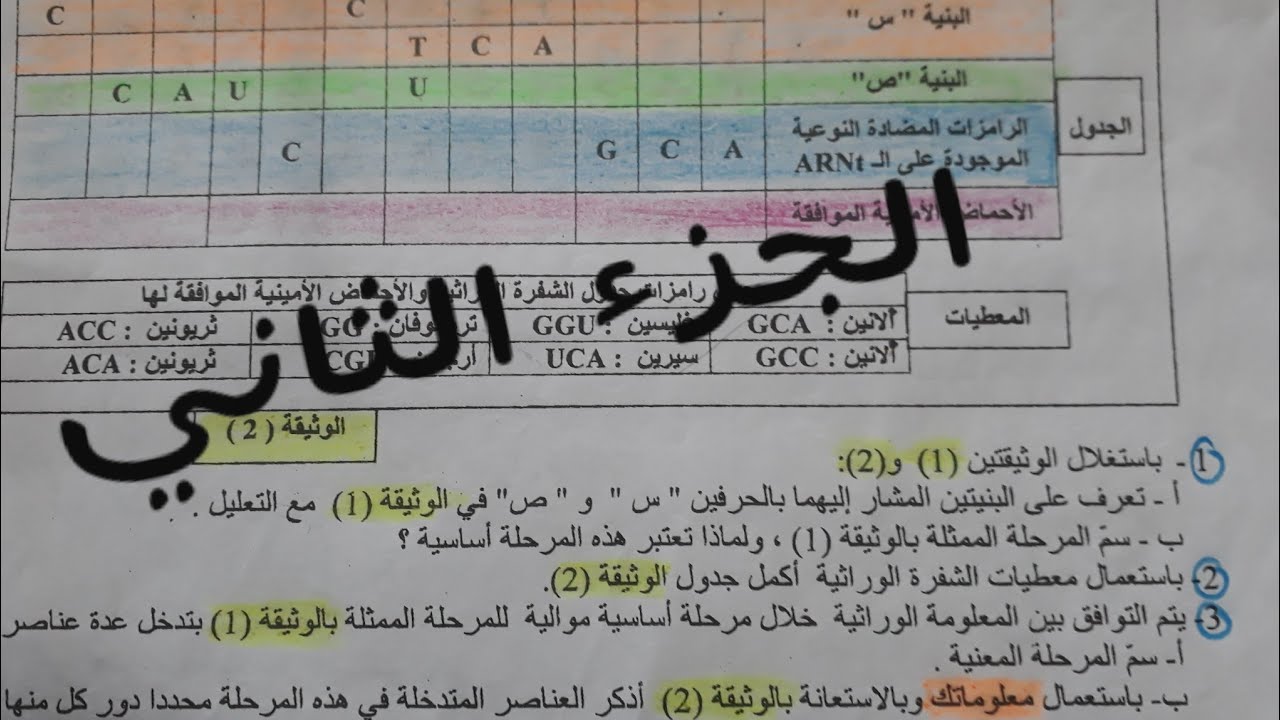 C C البنية " س "
T C A
C A U U البنية "ص"
الجدول
C G C A الرامزات المضادة النوعية
الموجودة على الـ ARNt
الموافقة
الجزء الثاني
المعطيات
الشفرة والأحماض الأمينية الموافقة لها
ألانين : GCA GGU : ثريونين : ACC
ألانين : GCC سيرين : UCA ثريونين : ACA
الوثيقة ( 2 )
1- باستغلال الوثيقتين (1) و(2):
أ - تعرف على البنيتين المشار إليهما بالحرفين " س " و " ص" في الوثيقة (1) مع التعليل .
ب - سمّ المرحلة الممثلة بالوثيقة (1) ، ولماذا تعتبر هذه المرحلة أساسية ؟
2- باستعمال معطيات الشفرة الوراثية أكمل جدول الوثيقة (2).
3- يتم التوافق بين المعلومة الوراثية خلال مرحلة أساسية موالية للمرحلة الممثلة بالوثيقة (1) بتدخل عدة عناصر
أ- سمّ المرحلة المعنية .
ب- باستعمال معلوماتك وبالاستعانة بالوثيقة (2) أذكر العناصر المتدخلة في هذه المرحلة محددا دور كل منها